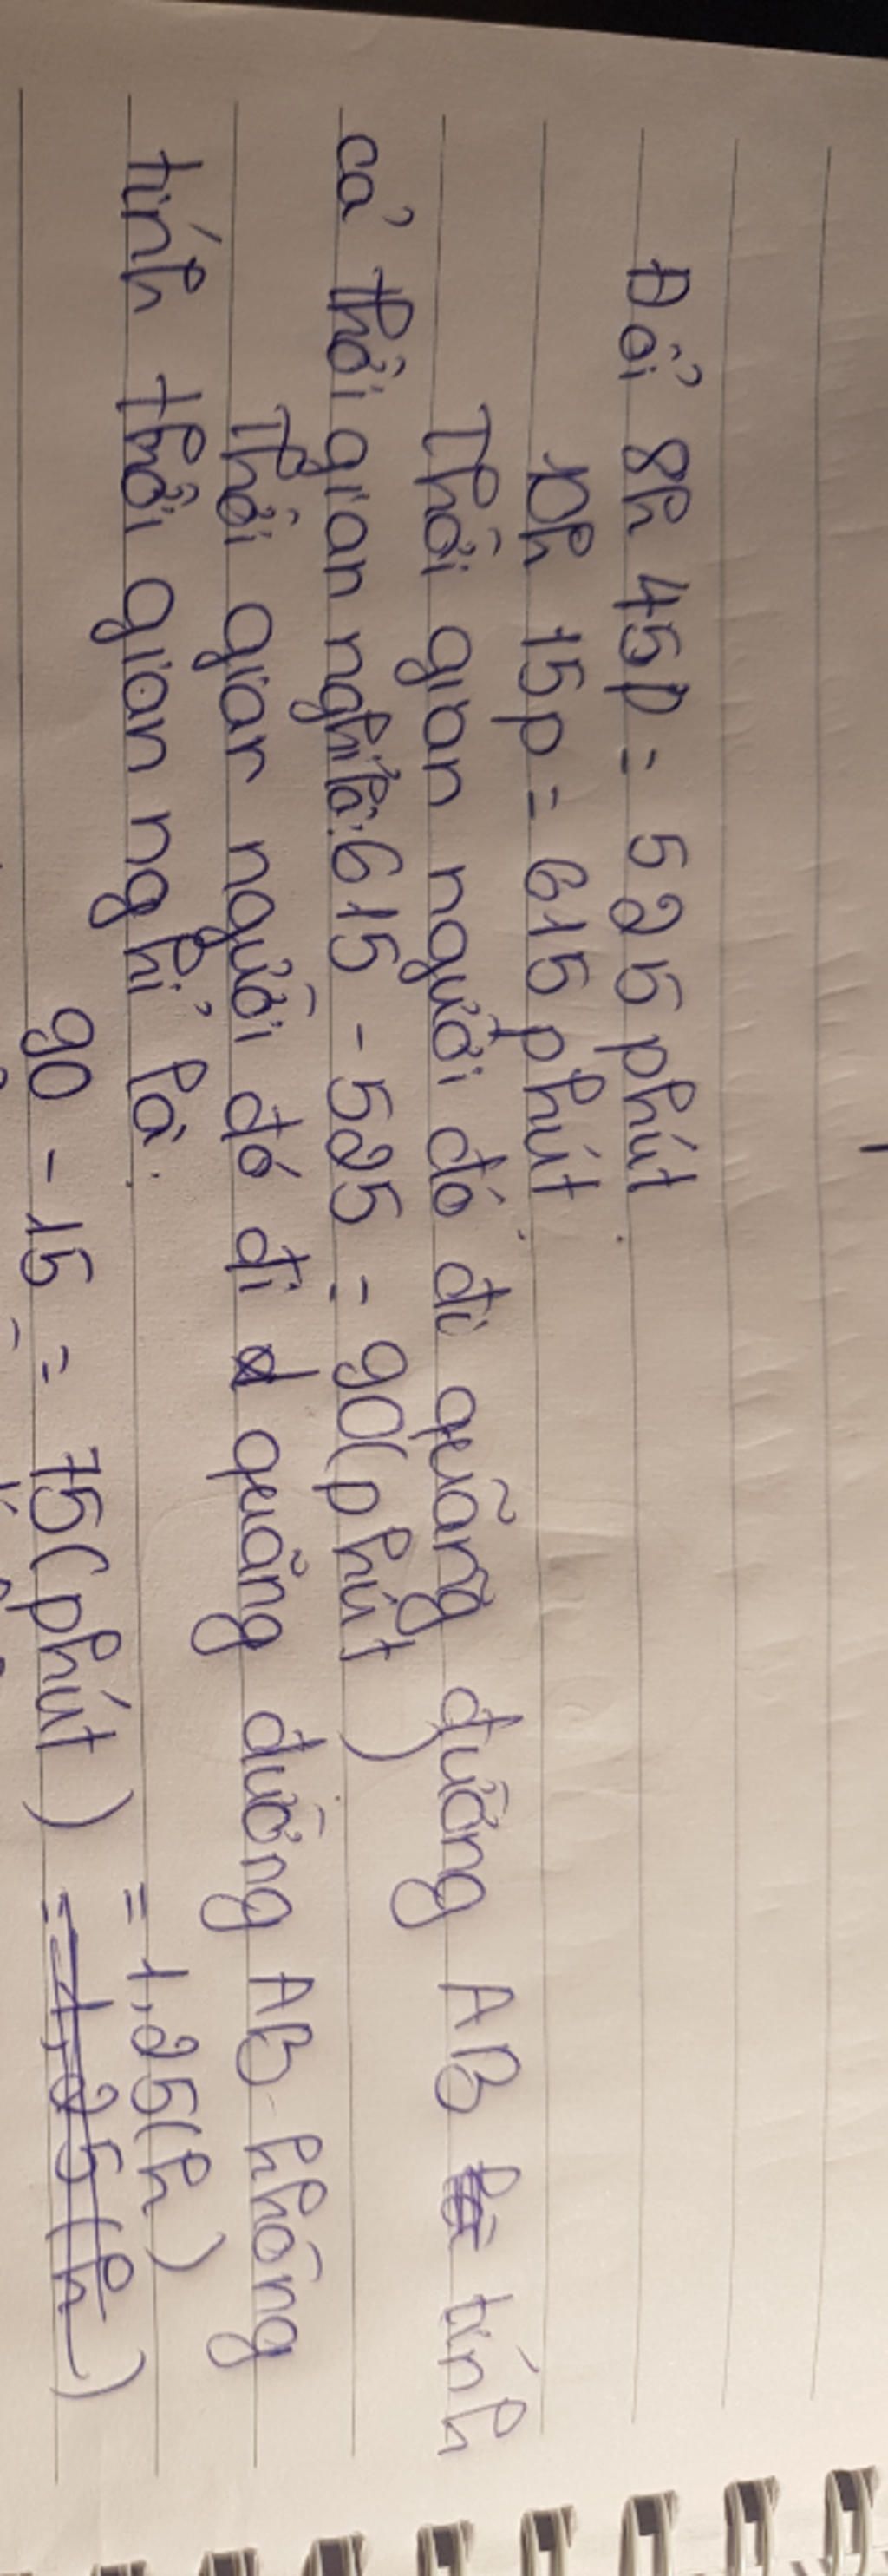 Đổi 8h 45p = 525 phút
10h 15p = 615 phút
Thời gian người đó đi quãng đường AB tính
cả thời gian nghỉ là: 615 - 525 = 90(phút)
Thời gian người đó đi quãng đường AB không
tính thời gian nghỉ là:
90 - 15 = 75(phút) = 1,25(h)
= 1,25(h)